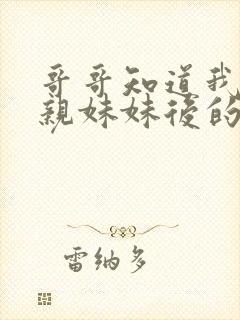 哥哥知道我
親妹妹後的
雷納多